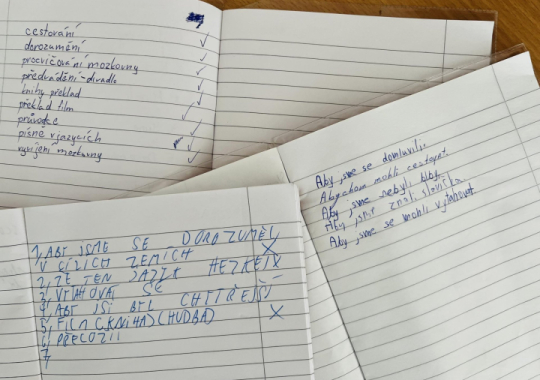 cestování
dorozumění
procvičování mozkovny
předvádění-divadlo
knihy překlad
překlad film
průvodce
písně v jazycích
vyvíjení mozkovny
Aby sme se domluvili,
Abychom mohli cestovat
Aby sme nebyli blbí
Aby sme znali
Aby sme se mohli vytahovat
1, ABY JSME SE DOROZUMĚL
V CIZÍCH ZEMÍCH X
2, ŽE TEN JAZIK HEZKEJ X
3, VITAHOVAT SE
4, ABY JSI BYL CHITŘEJŠÍ
5, FILM (KNIHA) (HUDBA) X
6,
7